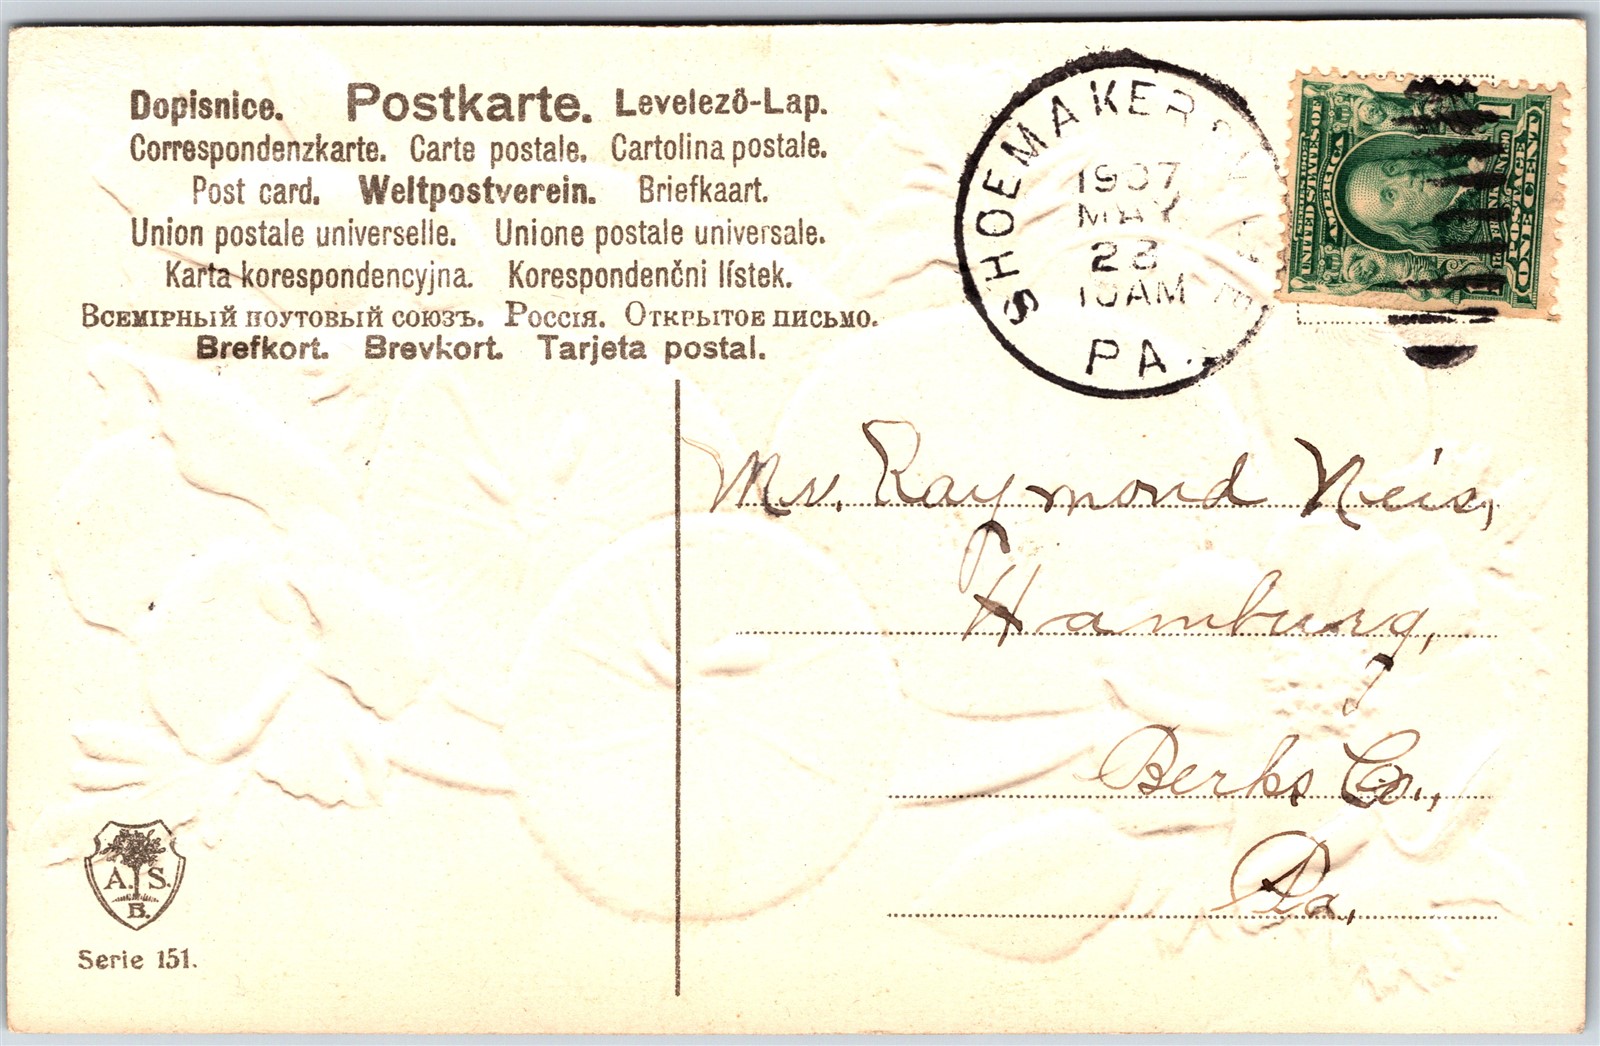 Dopisnice. Postkarte. Levelezō-Lap.
Correspondenzkarte. Carte postale. Cartolina postale.
Post card. Weltpostverein. Briefkaart.
Union postale universelle. Unione postale universale.
Karta korespondencyjna. Korespondenčni lístek.
Всемірный поутовый союзъ. Россія. Открытое письмо.
Brefkort. Brevkort. Tarjeta postal.
SHOEMAKERSVILLE
1907
MAY
10AM
PA.
UNITED STATES OF AMERICA
POSTAGE
ONE CENT
Mr. Raymond Neis,
Hamburg,
Berks Co.,
Pa,
A. S.
B.
Serie 151.